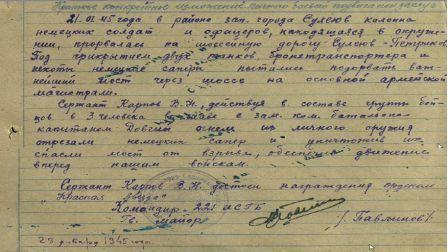 Краткое конкретное изложение личного боевого подвига или заслуг
21.01.45 года в районе зап. города Сулеюв колонна
немецких солдат и офицеров, находящаяся в окруже-
нии, прорвалась на шоссейную дорогу Сулеюв-Петраков
Под прикрытием двух танков, бронетранспортера и
пехоты немецкие сапер пытались подорвать важ-
нейший мост через шоссе на основной армейской
магистрали.
Сержант Карпов В.Н., действуя в составе группы бой-
цов в 3 человека во главе с зам. ком. батальона
капитаном огнем из личного оружия
отрезали немецких сапер и уничтожив их
спасли мост от взрыва, обеспечив движение
вперед нашим войскам.
Сержант Карпов В.Н. достоин награждения орденом
"Красная Звезда"
Командир 221 ОИСБ
Гв. майор /Павлинов/
1945 года